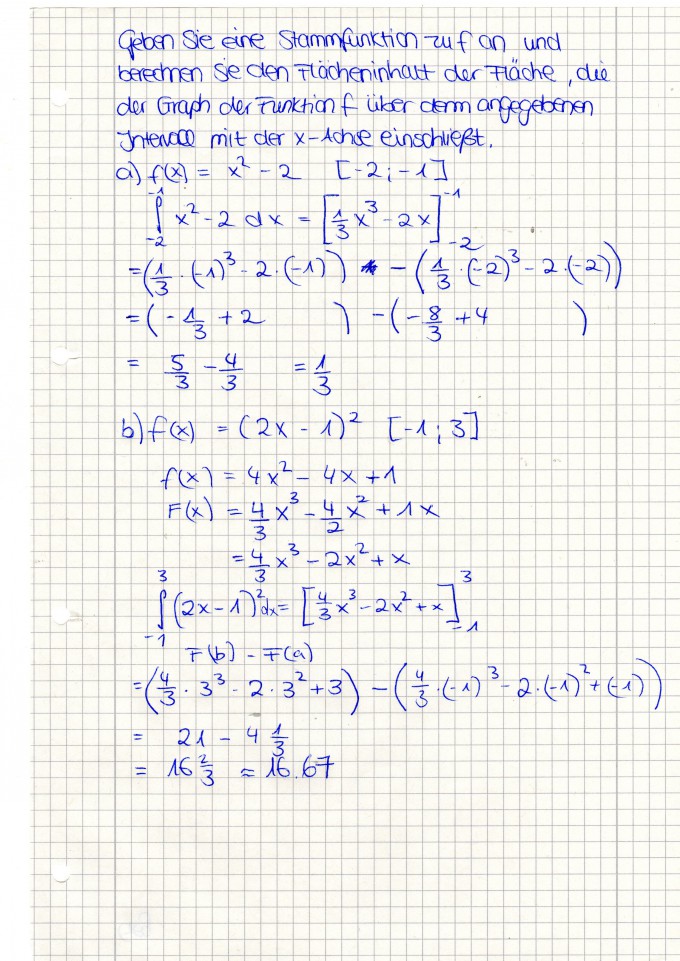 Geben Sie eine Stammfunktion zu f an und
berechnen Sie den Flächeninhalt der Fläche, die
der Graph der Funktion f über dem angegebenen
Intervall mit der x-Achse einschließt.
a) f(x) = x² - 2 [-2; -1]
∫₋₂⁻¹ x² - 2 dx = [1/3 x³ - 2x]₋₂⁻¹
= (1/3 · (-1)³ - 2 · (-1)) - (1/3 · (-2)³ - 2 · (-2))
= (-1/3 + 2) - (-8/3 + 4)
= 5/3 - 4/3 = 1/3
b) f(x) = (2x - 1)² [-1; 3]
f(x) = 4x² - 4x + 1
F(x) = 4/3 x³ - 4/2 x² + 1x
= 4/3 x³ - 2x² + x
∫₋₁³ (2x - 1)² dx = [4/3 x³ - 2x² + x]₋₁³
F(b) - F(a)
= (4/3 · 3³ - 2 · 3² + 3) - (4/3 · (-1)³ - 2 · (-1)² + (-1))
= 21 - 4 1/3
= 16 2/3 ≈ 16.67